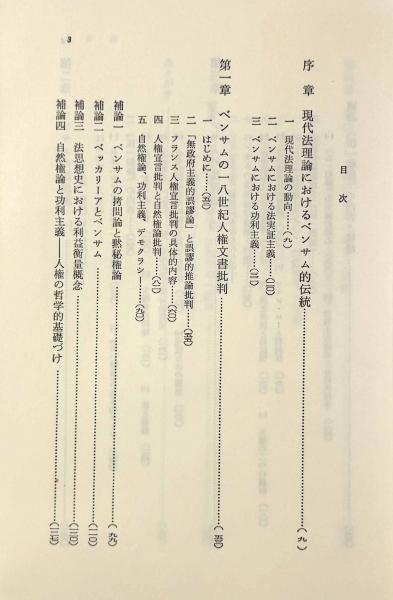 目次
序章 現代法理論におけるベンサム的伝統……(九)
一 現代法理論の動向……(九)
二 ベンサムにおける法実証主義……
三 ベンサムにおける功利主義……
第一章 ベンサムの一八世紀人権文書批判……(五〇)
一 はじめに……(五〇)
二 「無政府主義的誤謬論」と誤謬的推論批判……
三 フランス人権宣言批判の具体的内容……(六〇)
四 人権宣言批判と自然権論批判……(八二)
五 自然権論、功利主義、デモクラシー……(九二)
補論一 ベンサムの拷問論と黙秘権論……(九九)
補論二 ベッカリーアとベンサム……(一一〇)
補論三 法思想史における利益衡量概念……(一二〇)
補論四 自然権論と功利主義——人権の哲学的基礎づけ……(一三七)
3